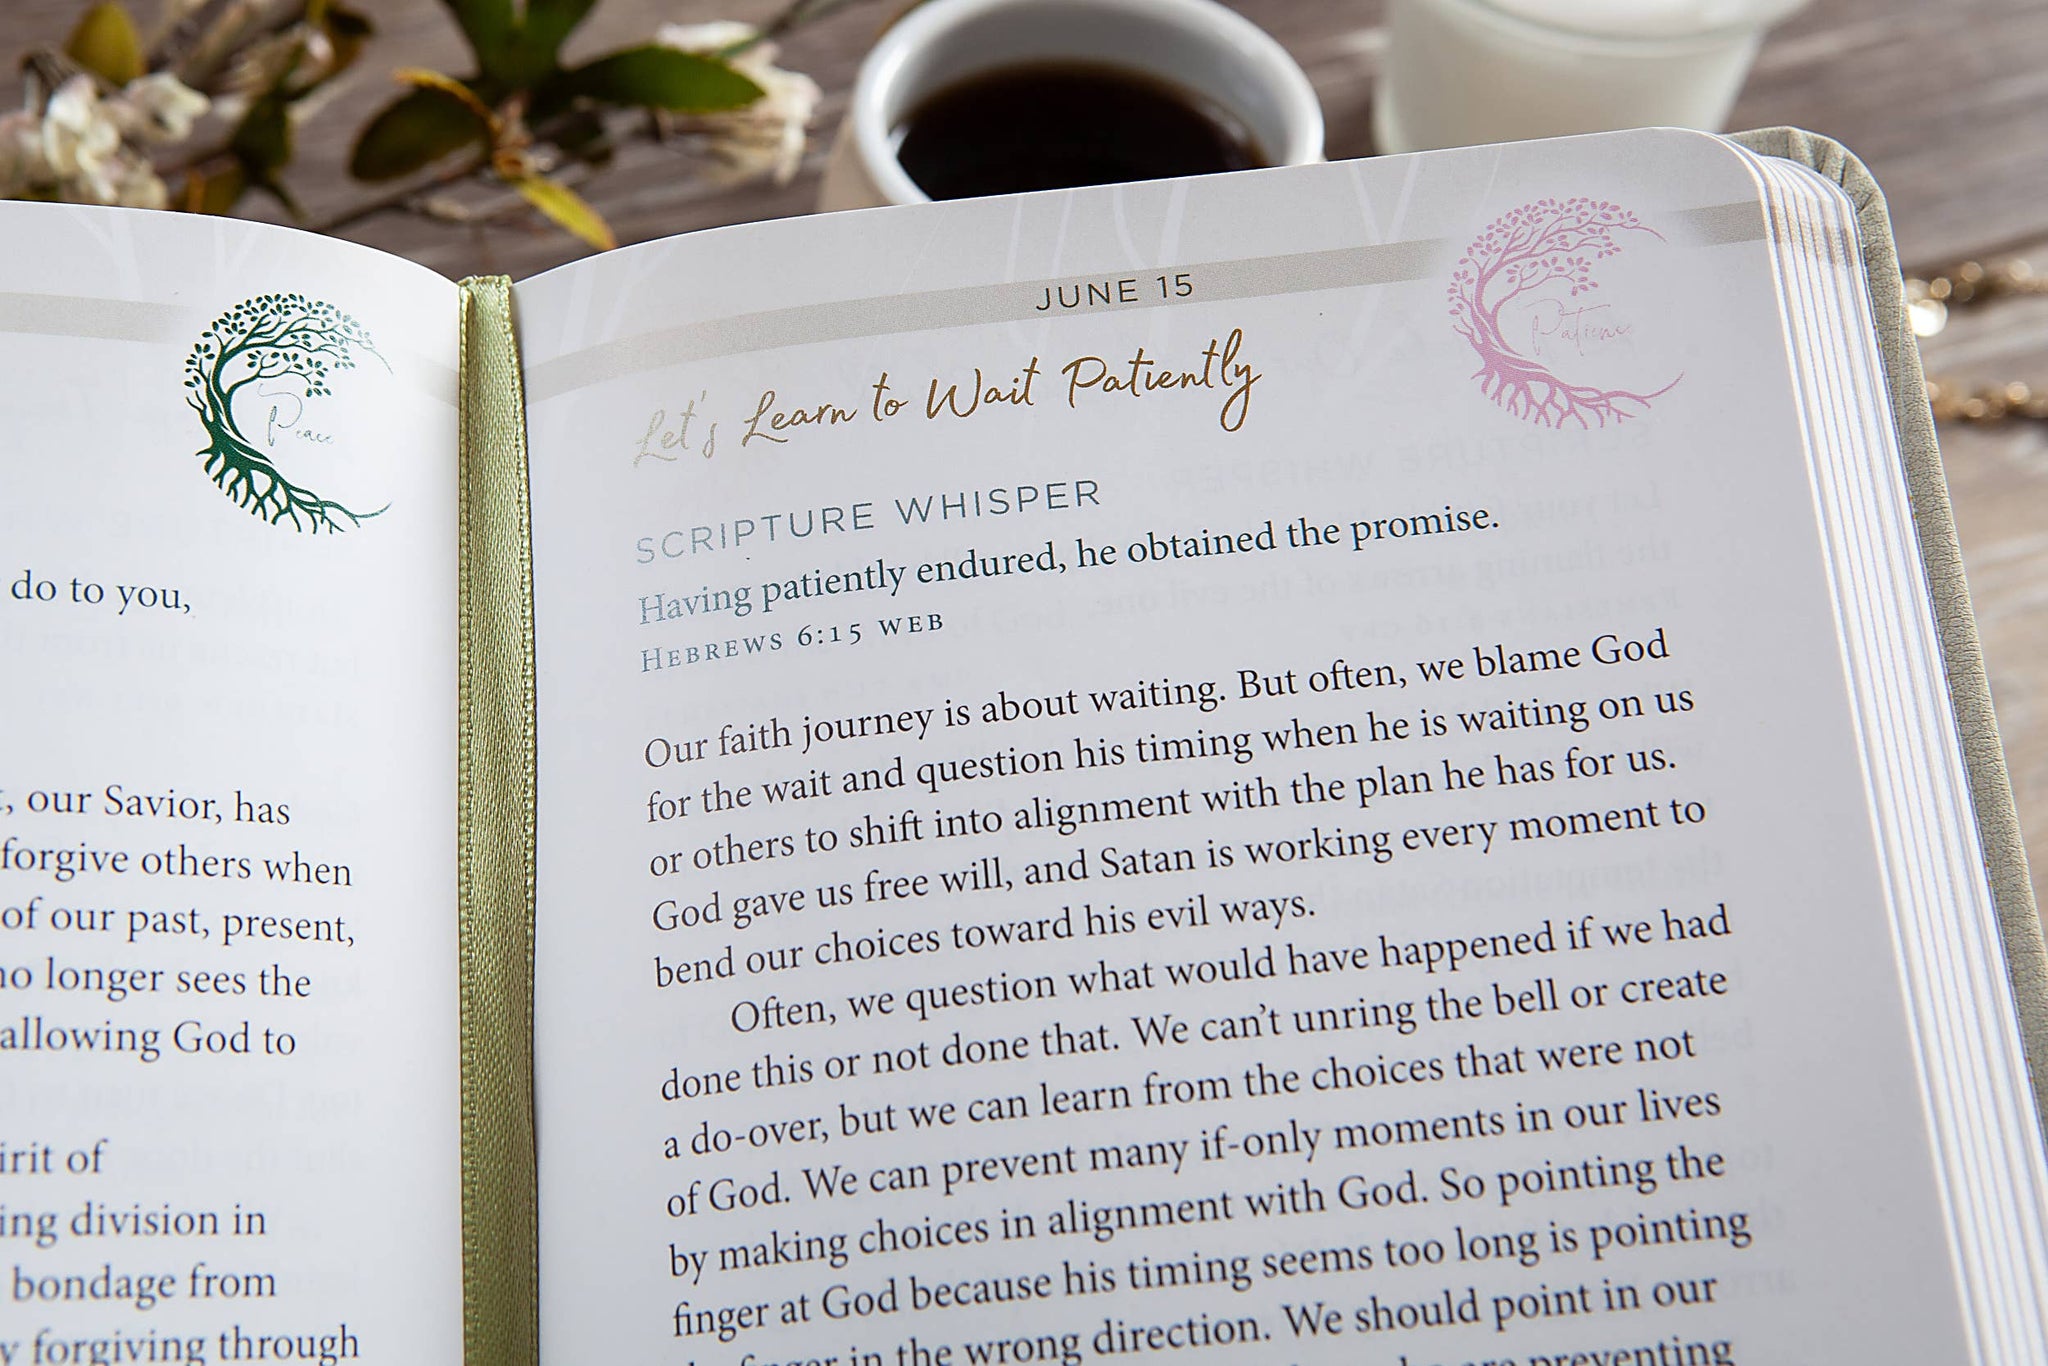 Peace
do to you,
, our Savior, has
forgive others when
of our past, present,
no longer sees the
allowing God to
irit of
ing division in
bondage from
y forgiving through
JUNE 15
Patience
Let's Learn to Wait Patiently
SCRIPTURE WHISPER
Having patiently endured, he obtained the promise.
HEBREWS 6:15 WEB
Our faith journey is about waiting. But often, we blame God
for the wait and question his timing when he is waiting on us
or others to shift into alignment with the plan he has for us.
God gave us free will, and Satan is working every moment to
bend our choices toward his evil ways.
Often, we question what would have happened if we had
done this or not done that. We can't unring the bell or create
a do-over, but we can learn from the choices that were not
of God. We can prevent many if-only moments in our lives
by making choices in alignment with God. So pointing the
finger at God because his timing seems too long is pointing
finger in the wrong direction. We should point in our
preventing